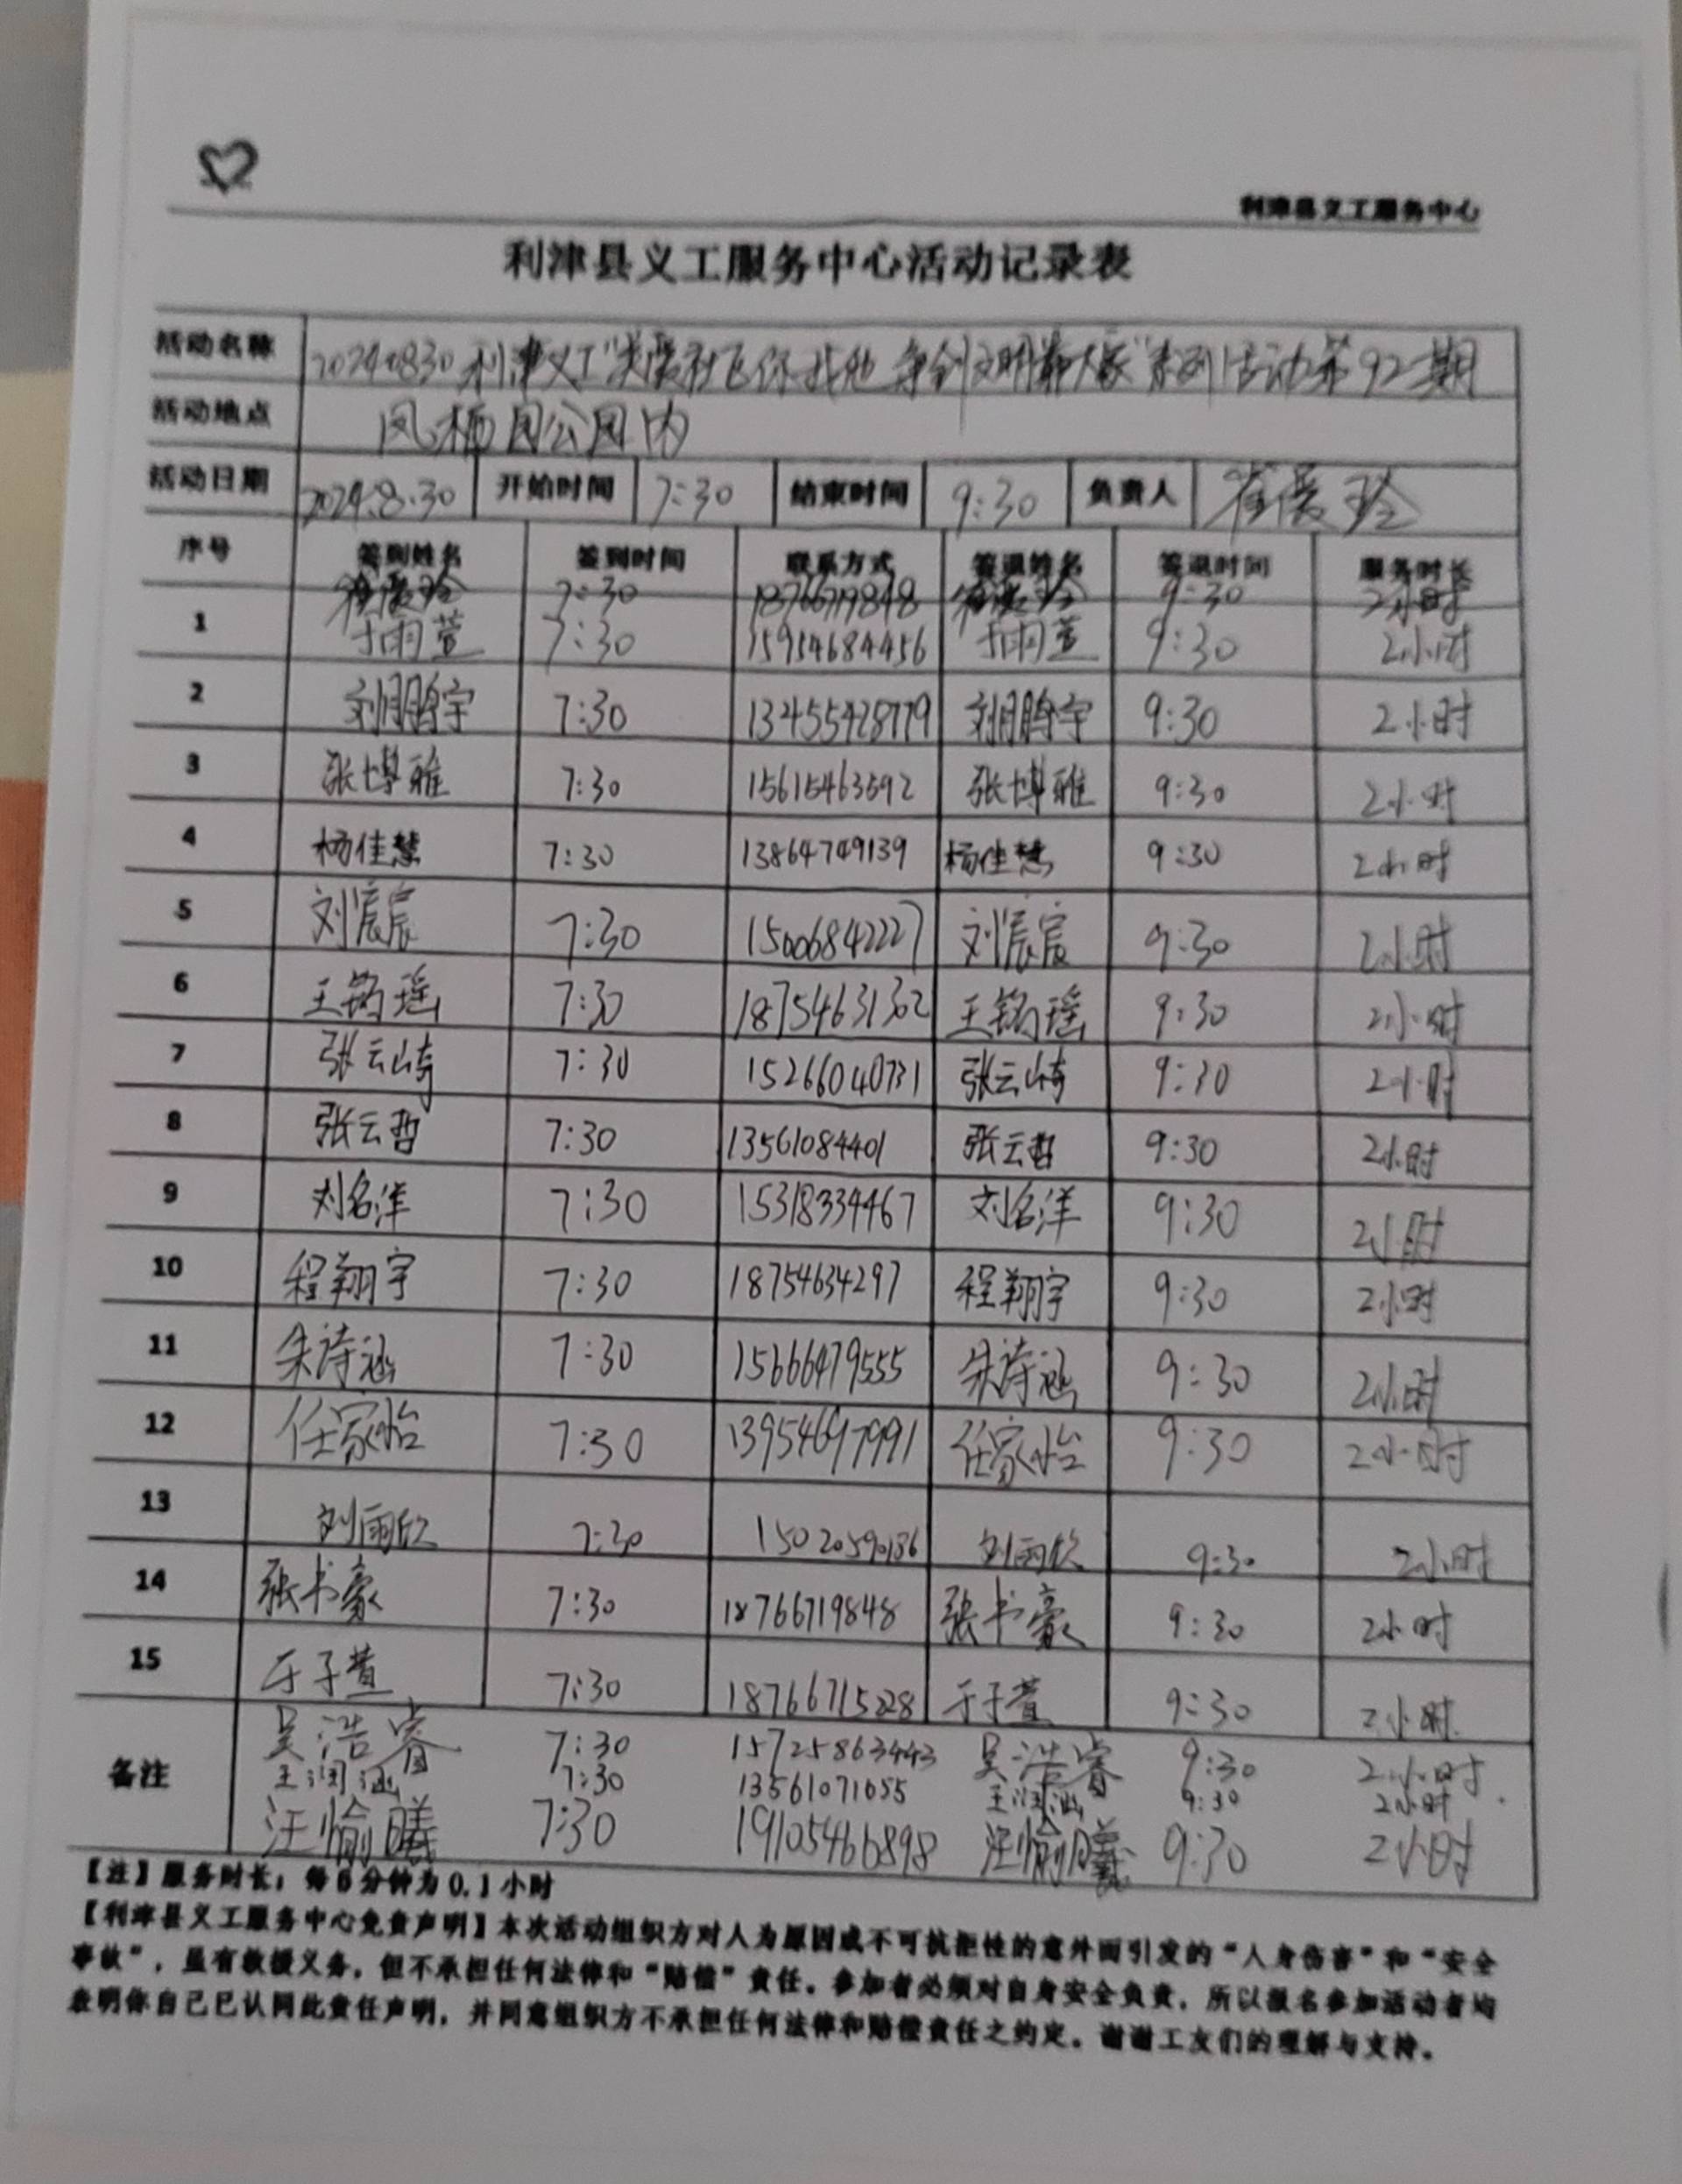 利津县义工服务中心
利津县义工服务中心活动记录表
活动名称 20240830利津义工"关爱社区你我他 争创文明靠大家"系列活动第92期
活动地点 凤栖园公园内
活动日期 2024.8.30 开始时间 7:30 结束时间 9:30 负责人 崔爱玲
序号 签到姓名 签到时间 联系方式 签退姓名 签退时间 服务时长
崔爱玲 7:30 18766719848 崔爱玲 9:30 2小时
1 于雨萱 7:30 15954684456 于雨萱 9:30 2小时
2 刘鹏宇 7:30 13455428779 刘鹏宇 9:30 2小时
3 张博雅 7:30 15615463592 张博雅 9:30 2小时
4 杨佳慧 7:30 13864749139 杨佳慧 9:30 2小时
5 刘宸宸 7:30 15006842227 刘宸宸 9:30 2小时
6 王铭瑶 7:30 18754631302 王铭瑶 9:30 2小时
7 张云崎 7:30 15266040731 张云崎 9:30 2小时
8 张云哲 7:30 13561084401 张云哲 9:30 2小时
9 刘名洋 7:30 15318334467 刘名洋 9:30 2小时
10 程翔宇 7:30 18754634297 程翔宇 9:30 2小时
11 朱诗涵 7:30 15666479555 朱诗涵 9:30 2小时
12 任家怡 7:30 13954697991 任家怡 9:30 2小时
13 刘雨欣 7:30 15020590186 刘雨欣 9:30 2小时
14 张书豪 7:30 18766719848 张书豪 9:30 2小时
15 于子萱 7:30 18766715228 于子萱 9:30 2小时
备注 吴浩睿 7:30 15725863443 吴浩睿 9:30 2小时
王润涵 7:30 13561071055 王润涵 9:30 2小时
汪愉曦 7:30 19105466898 汪愉曦 9:30 2小时
【注】服务时长：每6分钟为0.1小时
【利津县义工服务中心免责声明】本次活动组织方对人为原因或不可抗拒性的意外而引发的“人身伤害”和“安全
事故”，虽有救援义务，但不承担任何法律和“赔偿”责任。参加者必须对自身安全负责，所以报名参加活动者均
表明你自己已认同此责任声明，并同意组织方不承担任何法律和赔偿责任之约定。谢谢工友们的理解与支持。